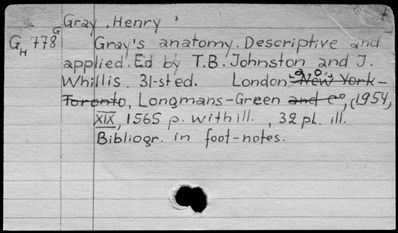 Gray, Henry
G GH 778 Gray's anatomy. Descriptive and
applied. Ed by T.B. Johnston and J.
Whillis. 31-sted. London-New York-
Toronto, Longmans-Green and Co, (1954,
XIX, 1565 p. with ill., 32 pl. ill.
Bibliogr. in foot-notes.